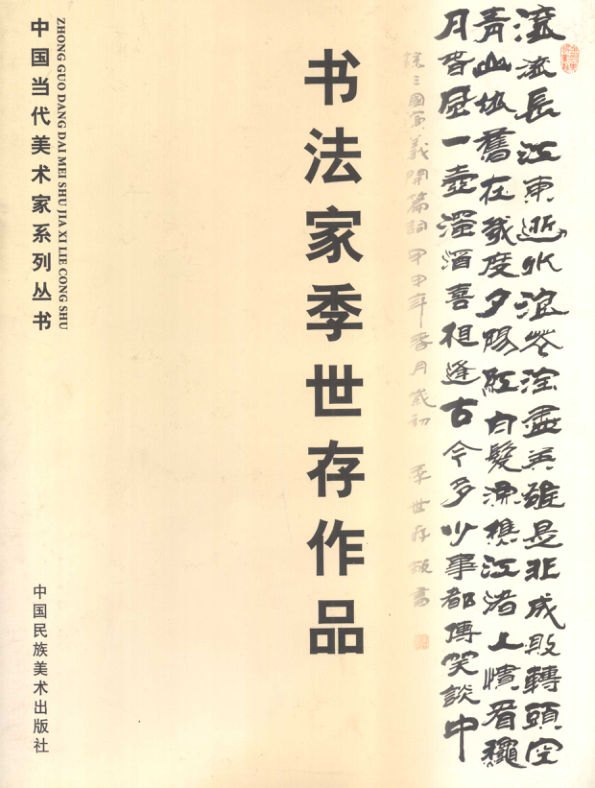 滚滚長江東逝水浪花淘盡英雄是非成敗轉頭空
青山依舊在幾度夕陽紅白髮漁樵江渚上慣看龝
月春風一壺濁酒喜相逢古今多少事都傅笑談中
三國演義開篇詞 甲申年 月歲初 季世存 書
书法家季世存作品
ZHONG GUO DANG DAI MEI SHU JIA XI LIE CONG SHU
中国当代美术家系列丛书
中国民族美术出版社